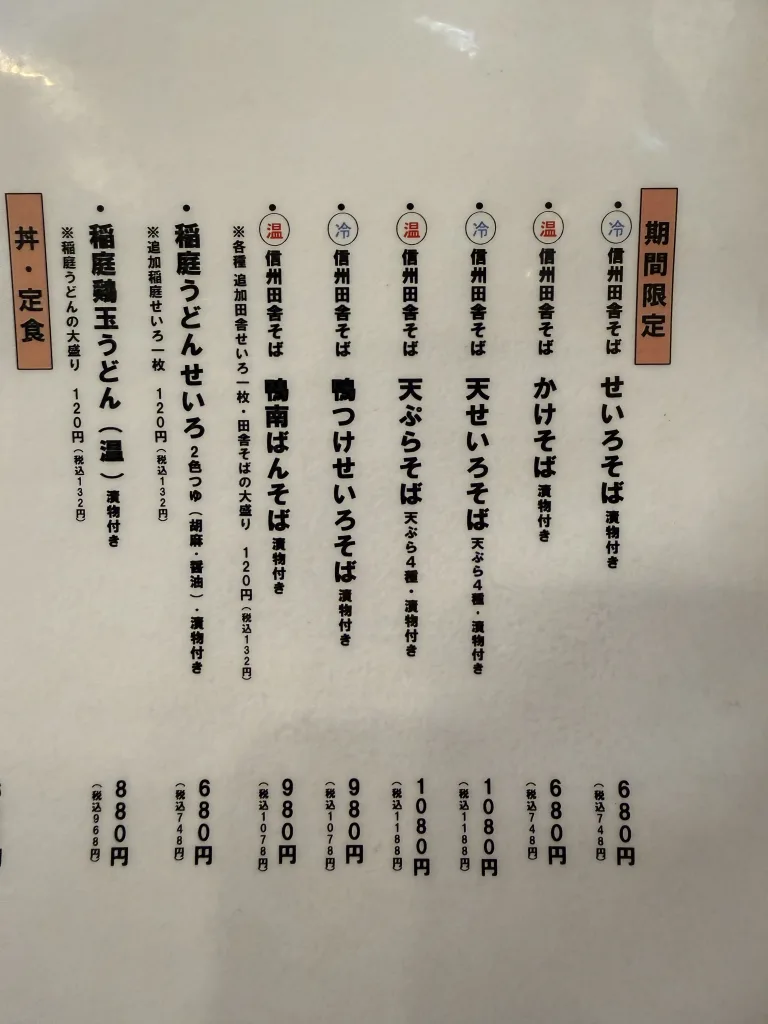 期間限定
・冷 信州田舎そば せいろそば 漬物付き 680円
(税込748円)
・温 信州田舎そば かけそば 漬物付き 680円
(税込748円)
・冷 信州田舎そば 天せいろそば 天ぷら4種・漬物付き 1080円
(税込1188円)
・温 信州田舎そば 天ぷらそば 天ぷら4種・漬物付き 1080円
(税込1188円)
・冷 信州田舎そば 鴨つけせいろそば 漬物付き 980円
(税込1078円)
・温 信州田舎そば 鴨南ばんそば 漬物付き 980円
(税込1078円)
※各種 追加田舎せいろ一枚・田舎そばの大盛り 120円(税込132円)
・稲庭うどんせいろ 2色つゆ(胡麻・醤油)・漬物付き 680円
(税込748円)
※追加稲庭せいろ一枚 120円(税込132円)
・稲庭鶏玉うどん(温) 漬物付き 880円
(税込968円)
※稲庭うどんの大盛り 120円(税込132円)
丼・定食